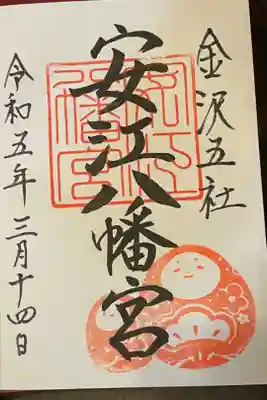 金沢五社
安江八幡宮
令和五年三月十四日